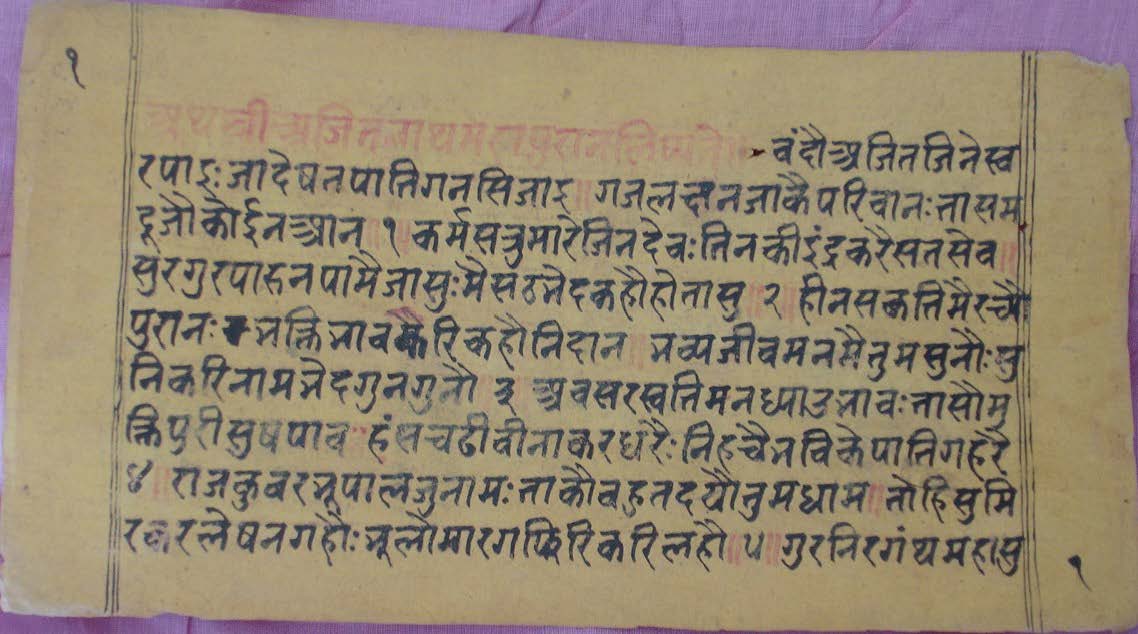 १
अथ श्री अजितनाथ पुरान लिष्यते॥ वंदौ अजितजिनेस्व
रपाइः जादेषतपातिगनसिजाइ ॥ गजलछनजाकैपरिवानः तासम
दूजौकोईनआन १ कर्मसत्रुमारेजिनदेवः तिनकीइंद्रकरैसतसेव ॥
सुरगुरपारुनपामैजासुः मैसठभेदकहौहोतासु २ हीनसकतिमैरच्यौ
पुरानः भक्तिभाव करिकहौनिदान ॥ भव्यजीवमनमैतुमसुनौः सु
निकरिनामभेदगुनगुनौ ३ अवसरस्वतिमनध्याउभावः तासौमु
क्तिपुरीसुषपाव ॥ हंसचढीवीनाकरधरैः निहचैभविकेपातिगहरै
४ ॥ राजकुवरभूपालजुनामः ताकौवहुतदयौतुमधाम ॥ तोहिसुमि
रकरलेषनगहौः भूलौमारगफिरिकरिलहौ ॥ ५ ॥ गुरनिरगंथमहासु
१